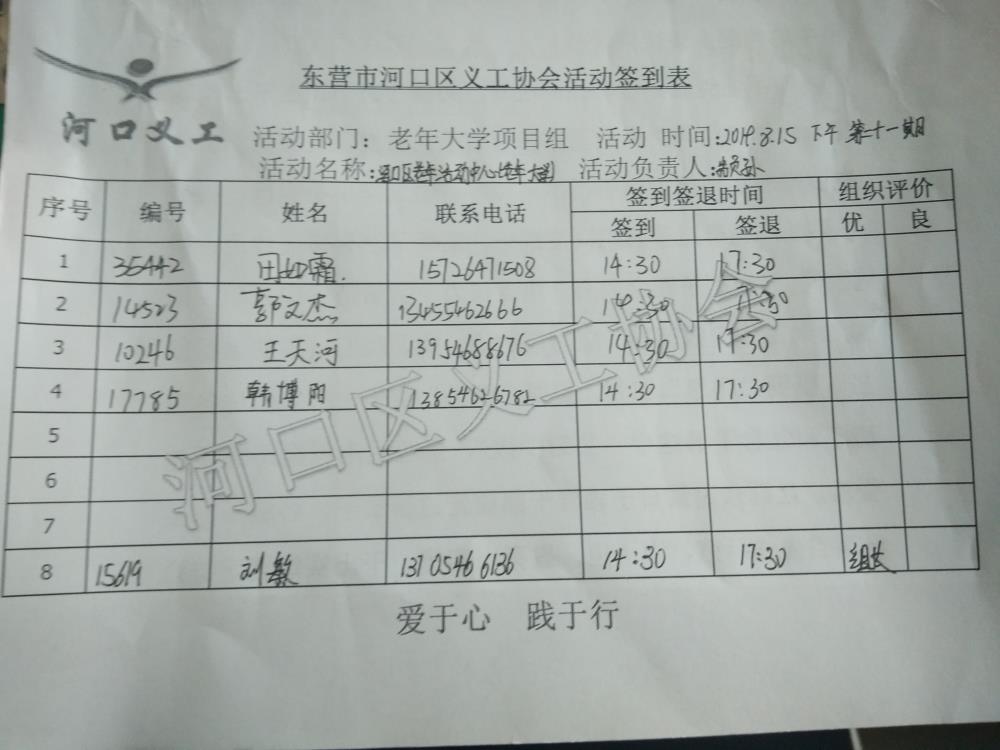 东营市河口区义工协会活动签到表
河口义工
活动部门：老年大学项目组 活动 时间:2019.8.15 下午 第十一期
活动名称:河口区老年活动中心(老年大学) 活动负责人:
序号 编号 姓名 联系电话 签到签退时间 组织评价
签到 签退 优 良
1 35442 田如霜. 15726471508 14:30 17:30
2 14523 郭文杰 13455462666 14:30 17:30
3 10246 王天河 13954688676 14:30 17:30
4 17785 韩博阳 13854626782 14:30 17:30
5
6
7
8 15619 刘敏 13705466136 14:30 17:30 组长
爱于心 践于行
河口区义工协会